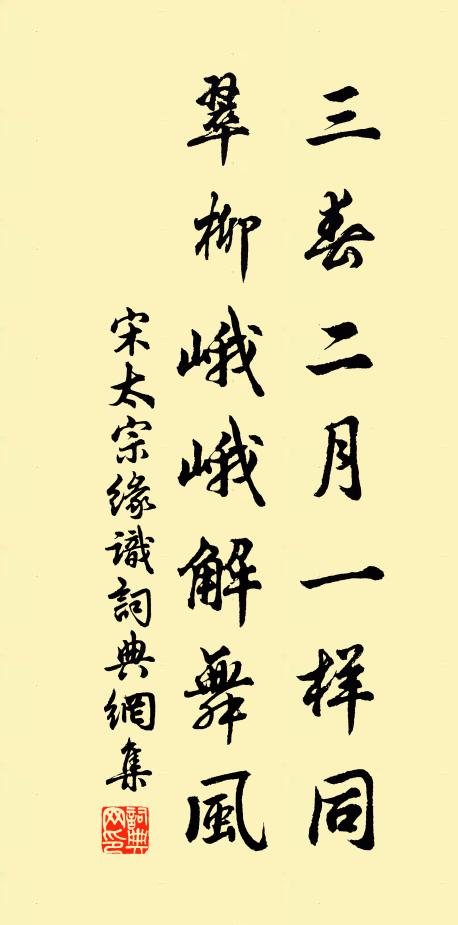 三春二月一样同
翠柳峨峨解舞風
宋太宗緣識詞典網集
詞典網印